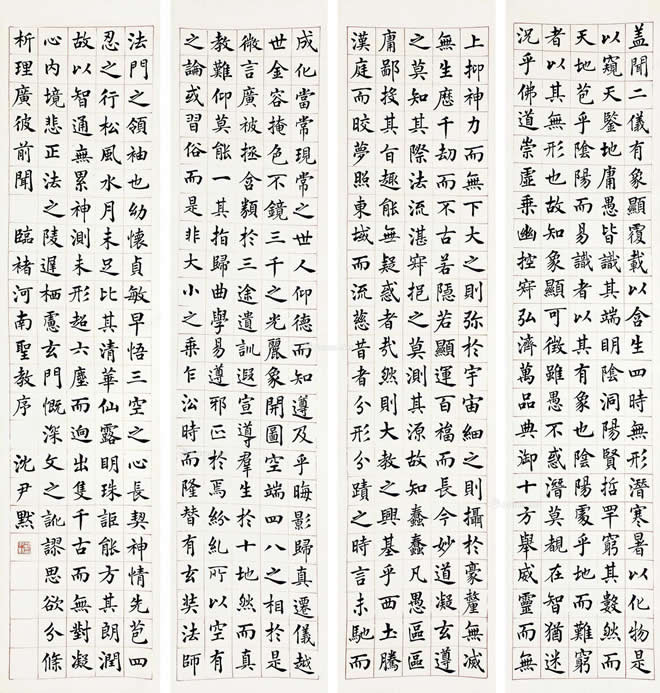 盖聞二儀有象顯覆載以含生四時無形潛寒暑以化物是
以窺天鑒地庸愚皆識其端明陰洞陽賢哲罕窮其數然而
天地苞乎陰陽而易識者以其有象也陰陽處乎地而難窮
者以其無形也故知象顯可徵雖愚不惑潛莫覩在智猶迷
況乎佛道崇虛乘幽控寂弘濟萬品典御十方舉威靈而無
上抑神力而無下大之則弥於宇宙細之則攝於豪釐無滅
無生歷千劫而不古若隱若顯運百福而長今妙道凝玄遵
之莫知其際法流湛寂挹之莫測其源故知蠢蠢凡愚區區
庸鄙投其旨趣能無疑惑者哉然則大教之興基乎西土騰
漢庭而皎夢照東域而流慈昔者分形分蹟之時言未馳而
成化當常現常之世人仰德而知遵及乎晦影歸真遷儀越
世金容掩色不鏡三千之光麗象開圖空端四八之相於是
微言廣被拯含類於三途遺訓遐宣導羣生於十地然而真
教難仰莫能一其指歸曲學易遵邪正於焉紛糾所以空有
之論或習俗而是非大小之乘乍沿時而隆替有玄奘法師
法門之領袖也幼懷貞敏早悟三空之心長契神情先苞四
忍之行松風水月未足比其清華仙露明珠詎能方其朗潤
故以智通無累神測未形超六塵而迥出隻千古而無對凝
心內境悲正法之陵遲栖慮玄門慨深文之訛謬思欲分條
析理廣彼前聞 臨褚河南聖教序 沈尹默